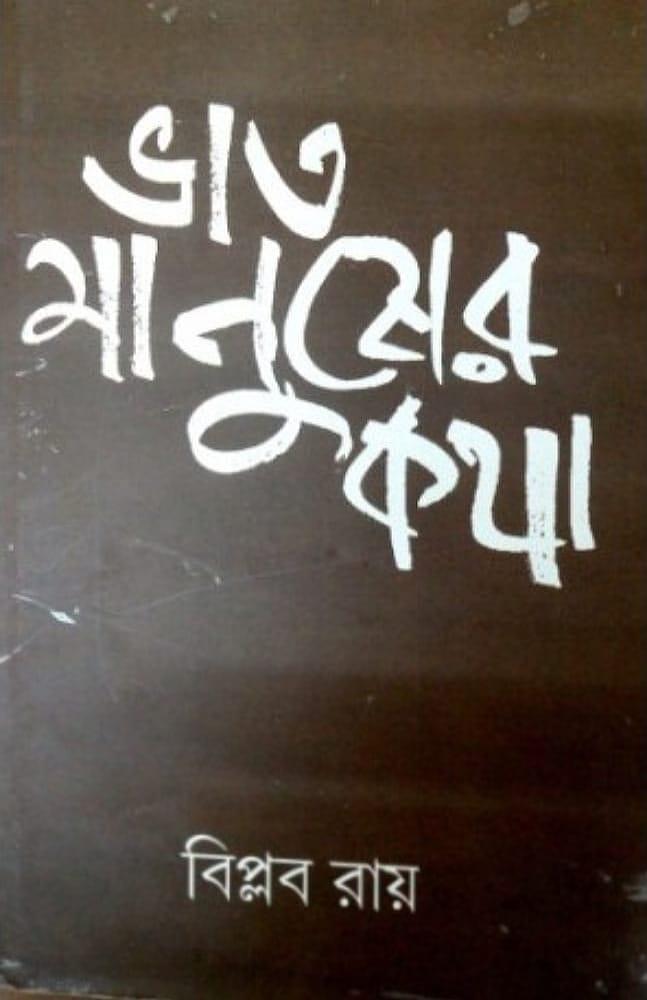 ভাত
মানুষের
কথা
বিপ্লব রায়